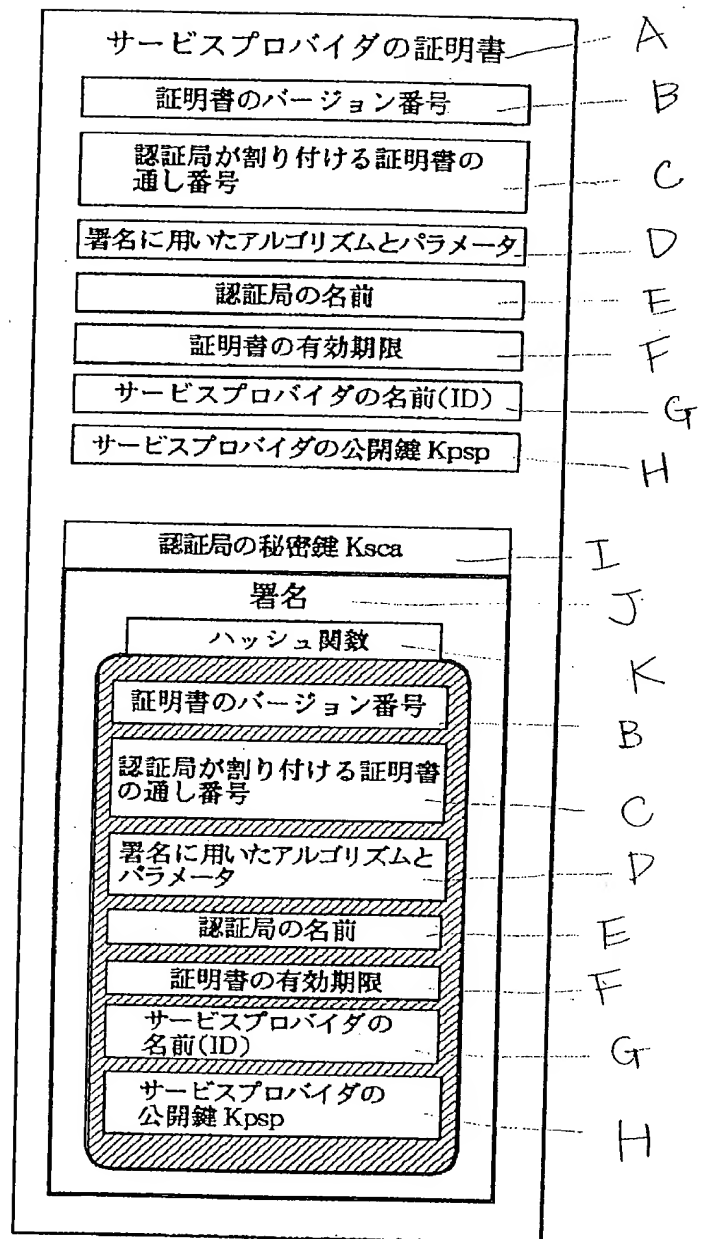 サービスプロバイダの証明書 A
証明書のバージョン番号 B
認証局が割り付ける証明書の
通し番号 C
署名に用いたアルゴリズムとパラメータ D
認証局の名前 E
証明書の有効期限 F
サービスプロバイダの名前(ID) G
サービスプロバイダの公開鍵 Kpsp H
認証局の秘密鍵 Ksca I
署名 J
ハッシュ関数 K
証明書のバージョン番号 B
認証局が割り付ける証明書
の通し番号 C
署名に用いたアルゴリズムと
パラメータ D
認証局の名前 E
証明書の有効期限 F
サービスプロバイダの
名前(ID) G
サービスプロバイダの
公開鍵 Kpsp H